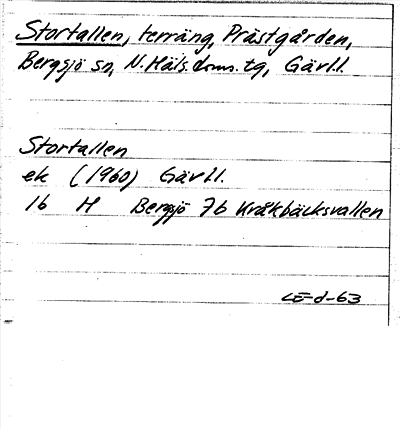 Stortallen, terräng, Prästgården,
Bergsjö sn, N. Häls. doms. tg, Gävl.l.
Stortallen
ek (1960) Gävl.l.
16 H Bergsjö 7b Kråkbäcksvallen
d-63